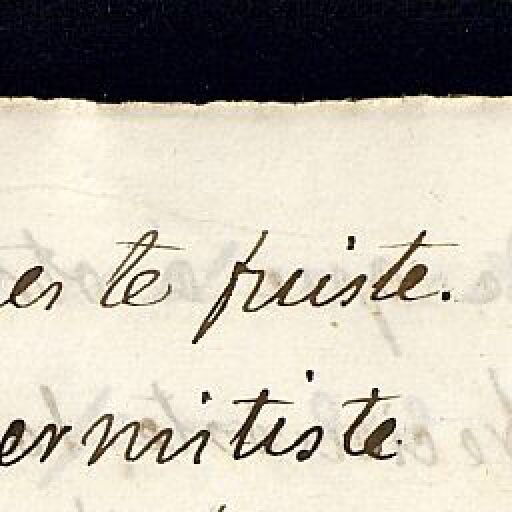 es te fuiste.
ermitiste